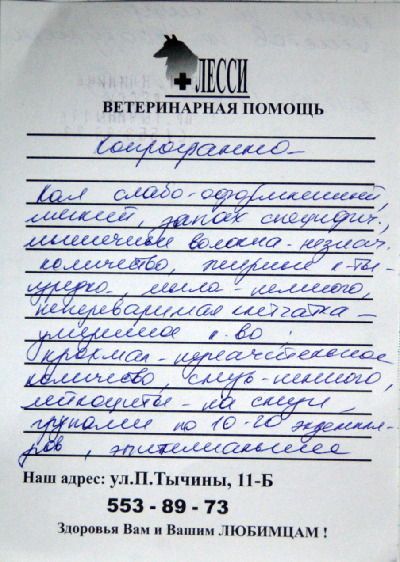 ЛЕССИ
ВЕТЕРИНАРНАЯ ПОМОЩЬ
Копрограмма
Кал слабо-оформленный,
мягкий, запах специфич.,
мышечные волокна - незнач.
количество, жирные к-ты -
редко, мыла - немного,
непереваримая клетчатка -
умеренное к-во,
крахмал -
количество, слизь - немного,
лейкоциты - на слизи
группами по 10-20 экземпля-
ров, эпителиальные
Наш адрес: ул.П.Тычины, 11-Б
553 - 89 - 73
Здоровья Вам и Вашим ЛЮБИМЦАМ !